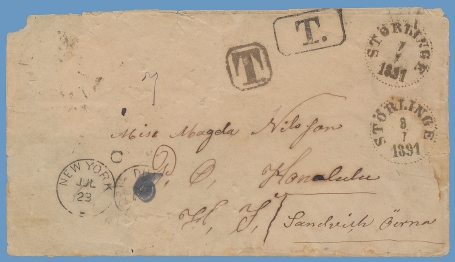 T.
T
STÖRLINGE
7
7
1891
STÖRLINGE
8
7
1891
Miss Magda Nilsson
P. O. Honolulu
H. I. Sandvich Öerna
NEW YORK
JUL
23
C